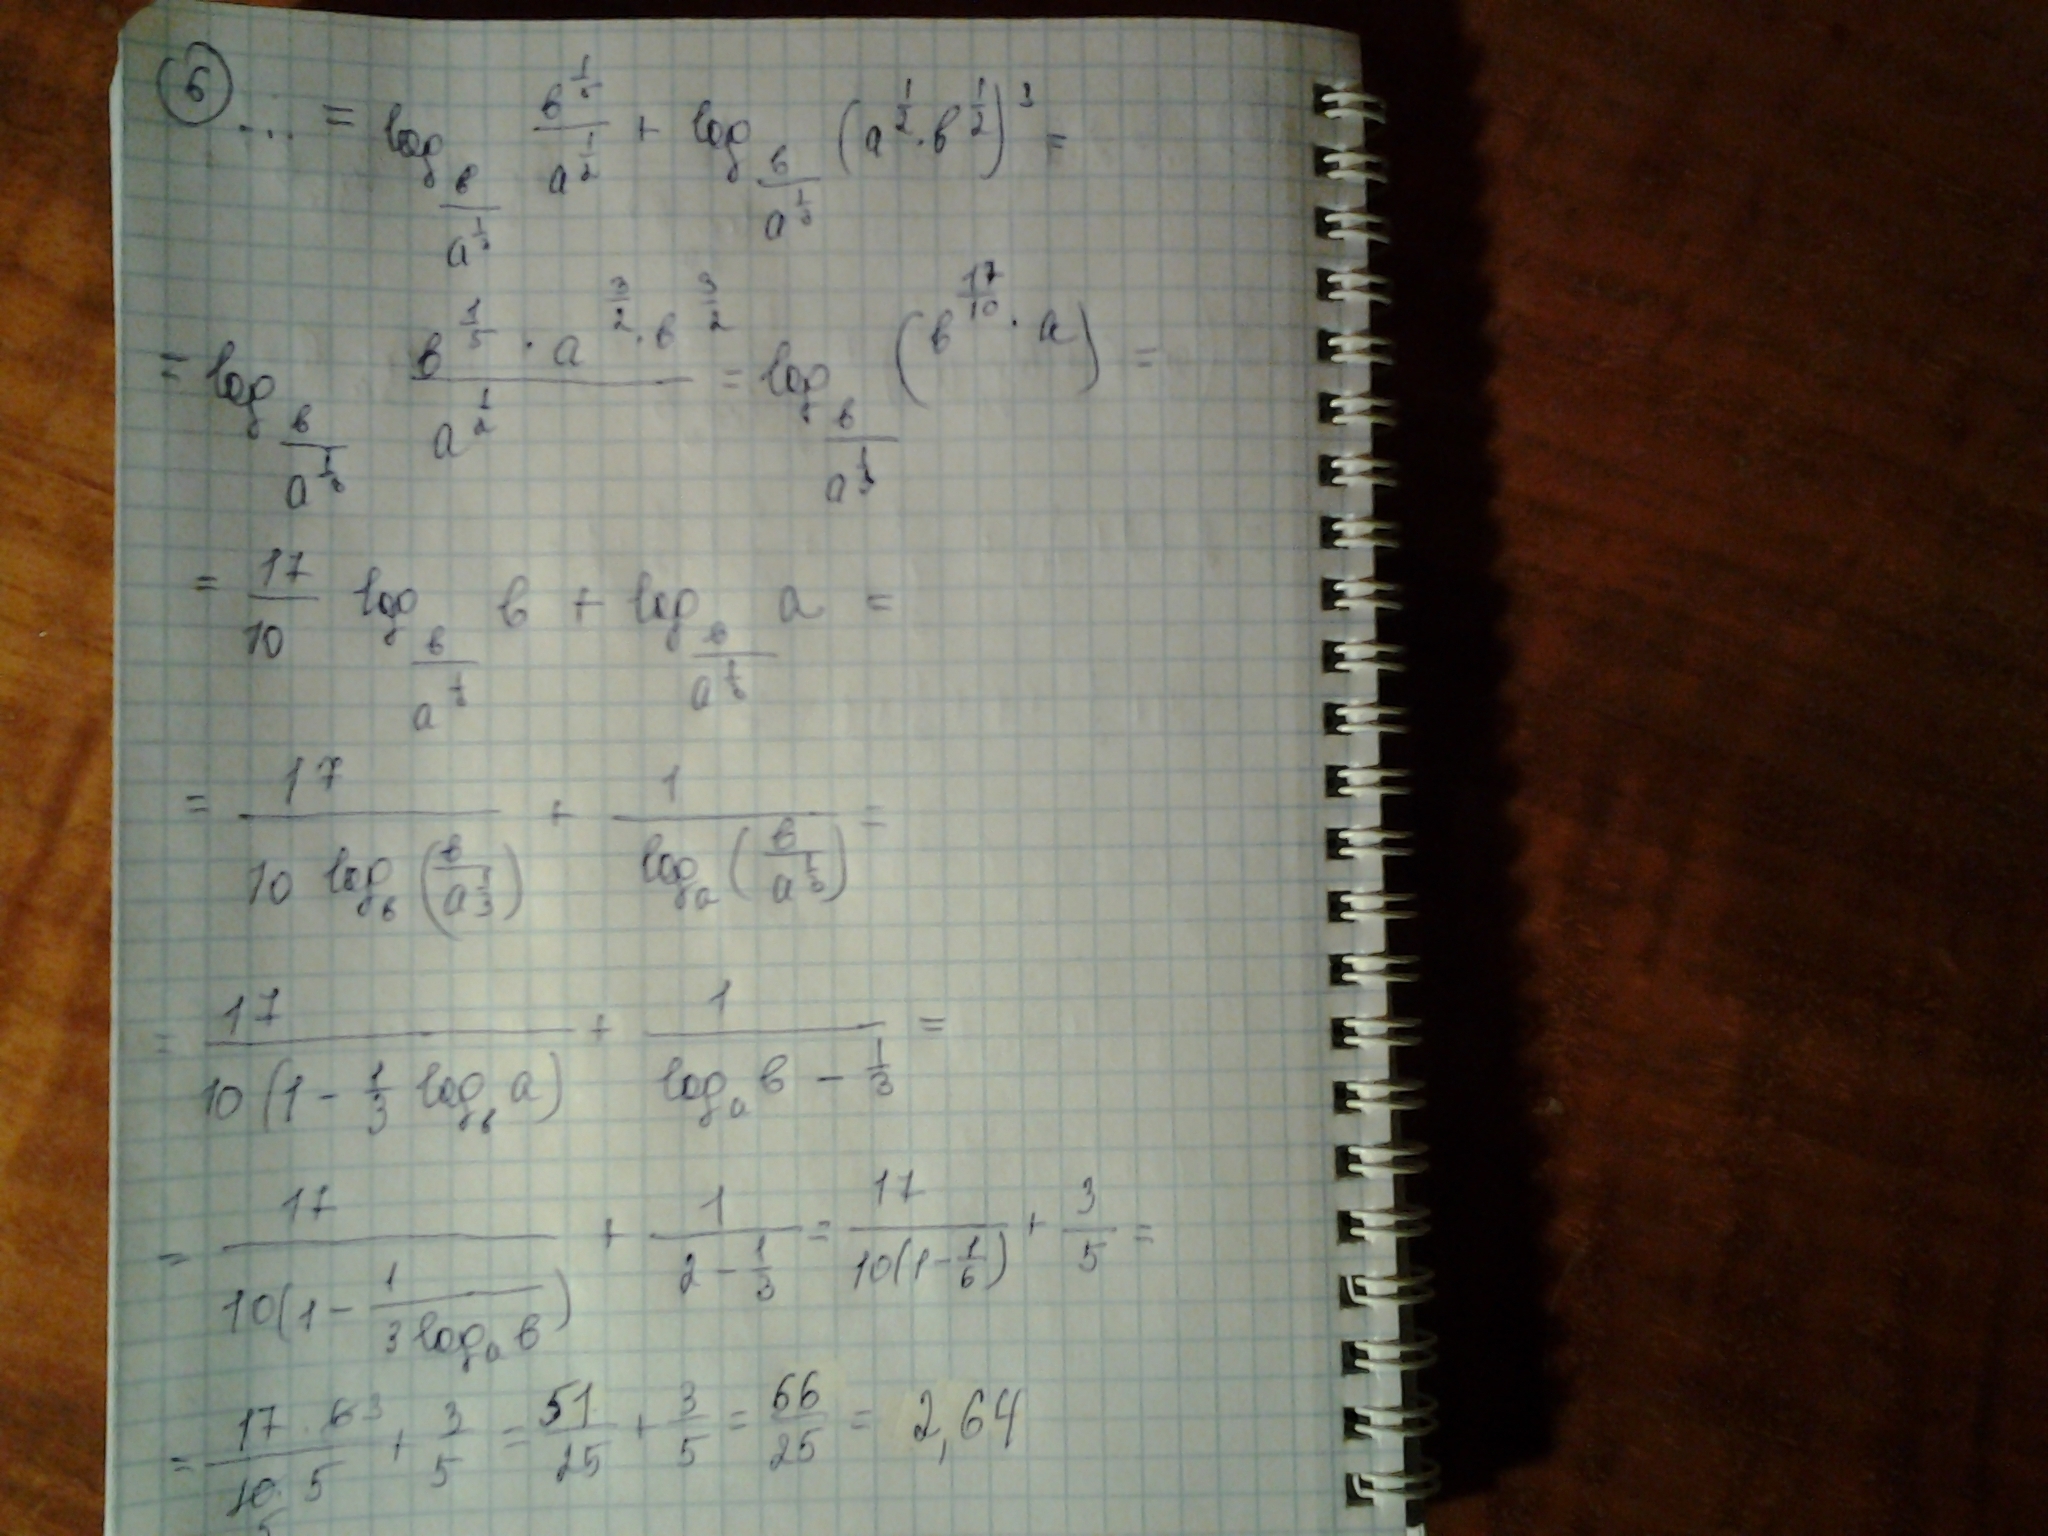 6 ... = log_{в/a^{1/3}} в^{1/5}/a^{1/2} + log_{в/a^{1/3}} (a^{1/2} · в^{1/2})^3 =
= log_{в/a^{1/3}} (в^{1/5} · a^{3/2} · в^{3/2})/a^{1/2} = log_{в/a^{1/3}} (в^{17/10} · a) =
= 17/10 log_{в/a^{1/3}} в + log_{в/a^{1/3}} a =
= 17/(10 log_в (в/a^{1/3})) + 1/(log_a (в/a^{1/3})) =
= 17/(10(1 - 1/3 log_в a)) + 1/(log_a в - 1/3) =
= 17/(10(1 - 1/(3 log_a в))) + 1/(2 - 1/3) = 17/(10(1 - 1/6)) + 3/5 =
= (17 · 6 3)/(10 · 5) + 3/5 = 51/25 + 3/5 = 66/25 = 2,64
5